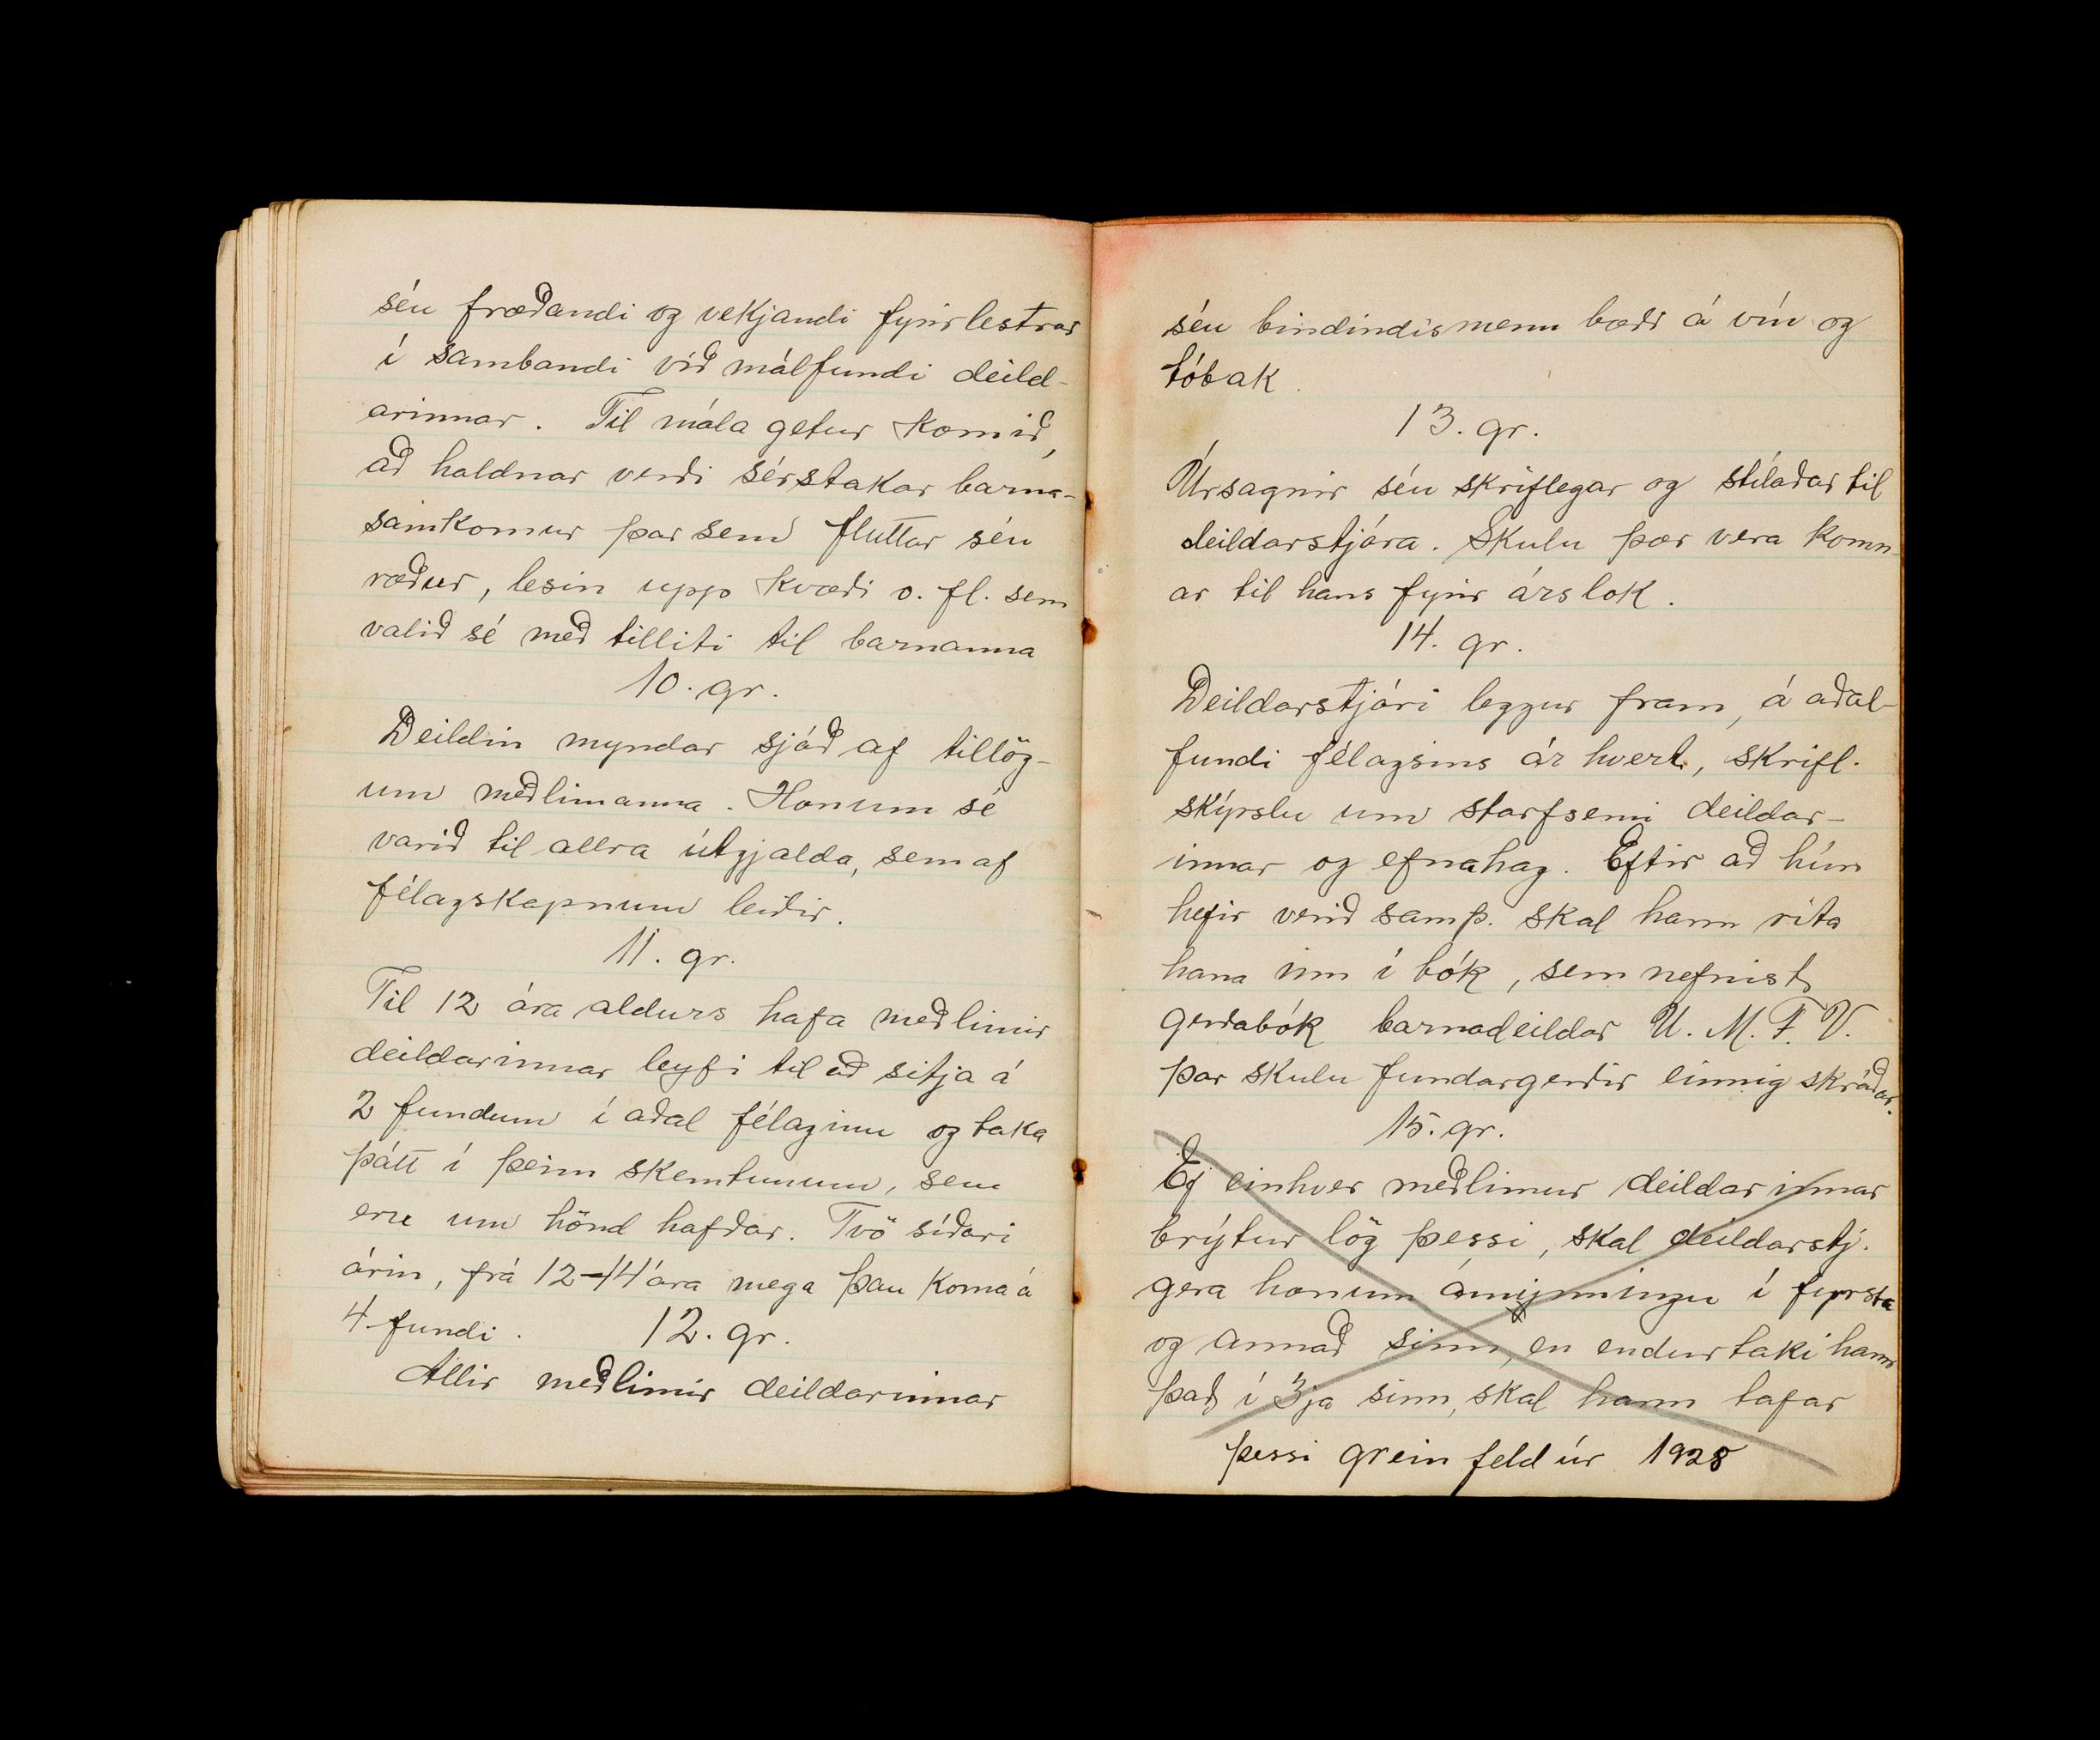 séu fræðandi og vekjandi fyrirlestrar
í sambandi við málfundi deild-
arinnar. Til mála getur komið,
að haldnar verði sérstakar barna-
samkomur þar sem fluttar séu
ræður, lesin upp kvæði o. fl. sem
valið sé með tilliti til barnanna
10. gr.
Deildin myndar sjóð af tillög-
um meðlimanna. Honum sé
varið til allra útgjalda, sem af
félagskapnum leiðir.
11. gr.
Til 12 ára aldurs hafa meðlimir
deildarinnar leyfi til að sitja á
2 fundum í aðal félaginu og taka
þátt í þeim skemtunum, sem
eru um hönd hafðar. Tvö síðari
árin, frá 12-14 ára mega þau koma á
4 fundi. 12. gr.
Allir meðlimir deildarinnar
séu bindindismenn bæði á vín og
tóbak.
13. gr.
Úrsagnir séu skriflegar og stílaðar til
deildarstjóra. Skulu þær vera komn-
ar til hans fyrir árslok.
14. gr.
Deildarstjóri leggur fram, á aðal-
fundi félagsins ár hvert, skrifl.
skýrslu um starfsemi deildar-
innar og efnahag. Eftir að hún
hefir verið samþ. skal hann rita
hana inn í bók, sem nefnist
gerðabók barnadeildar U. M. F. V.
Þar skulu fundargerðir einnig skráðar.
15. gr.
Ef einhver meðlimur deildarinnar
brýtur lög þessi, skal deildarstj.
gera honum ámynningu í fyrsta
og annað sinn, en endurtaki hann
það í 3ja sinn, skal hann tafar
þessi grein feld úr 1928